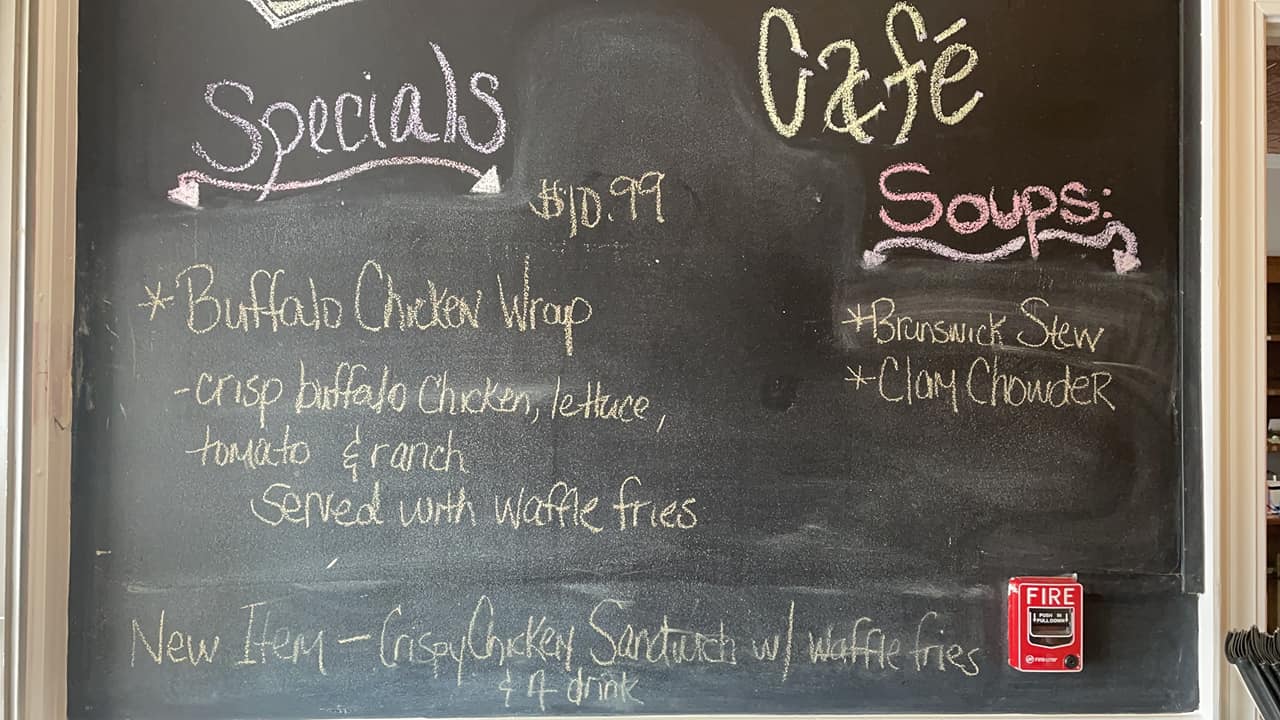 Specials
Café
$10.99
Soups:
*Buffalo Chicken Wrap
-crisp buffalo Chicken, lettuce,
tomato & ranch
Served with waffle fries
*Brunswick Stew
*Clam Chowder
New Item - Crispy Chicken Sandwich w/ waffle fries
& A drink
FIRE
PUSH IN
PULL DOWN